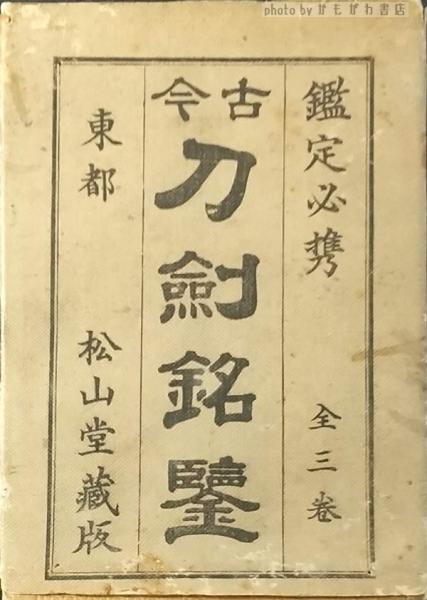 photo by かもがわ書店
鑑定必携
全三巻
古今
刀劍銘鑒
東都
松山堂藏版